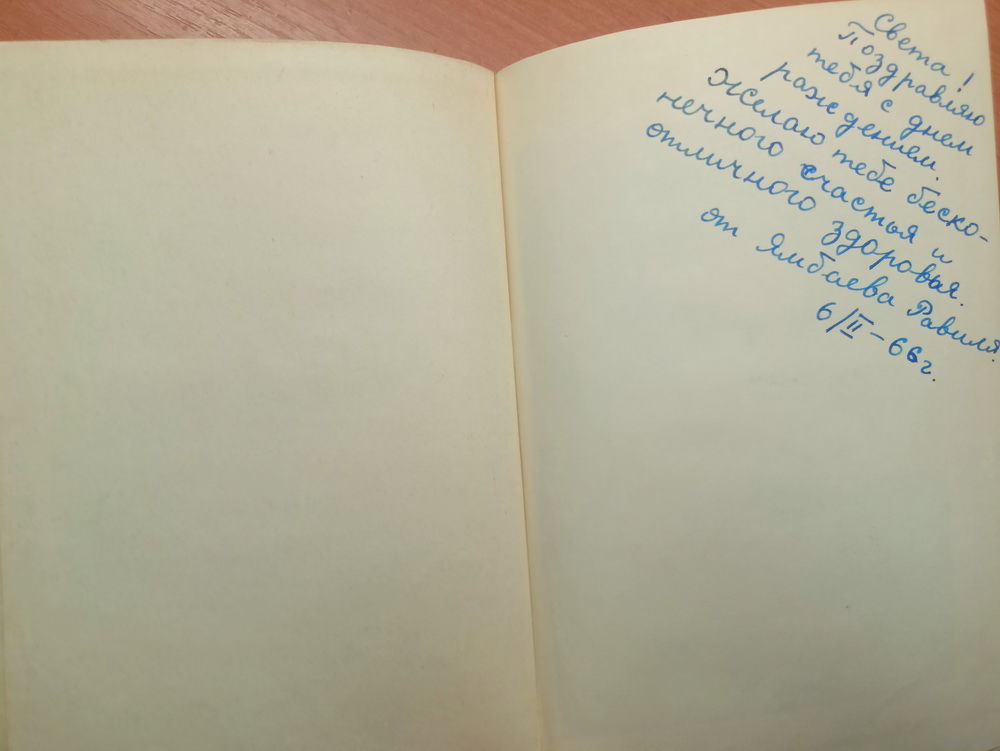 Света!
Поздравляю
тебя с днем
раждением.
Желаю тебе беско-
нечного счастья и
отличного здоровья.
от Ямбаева Равиля.
6/II-66г.